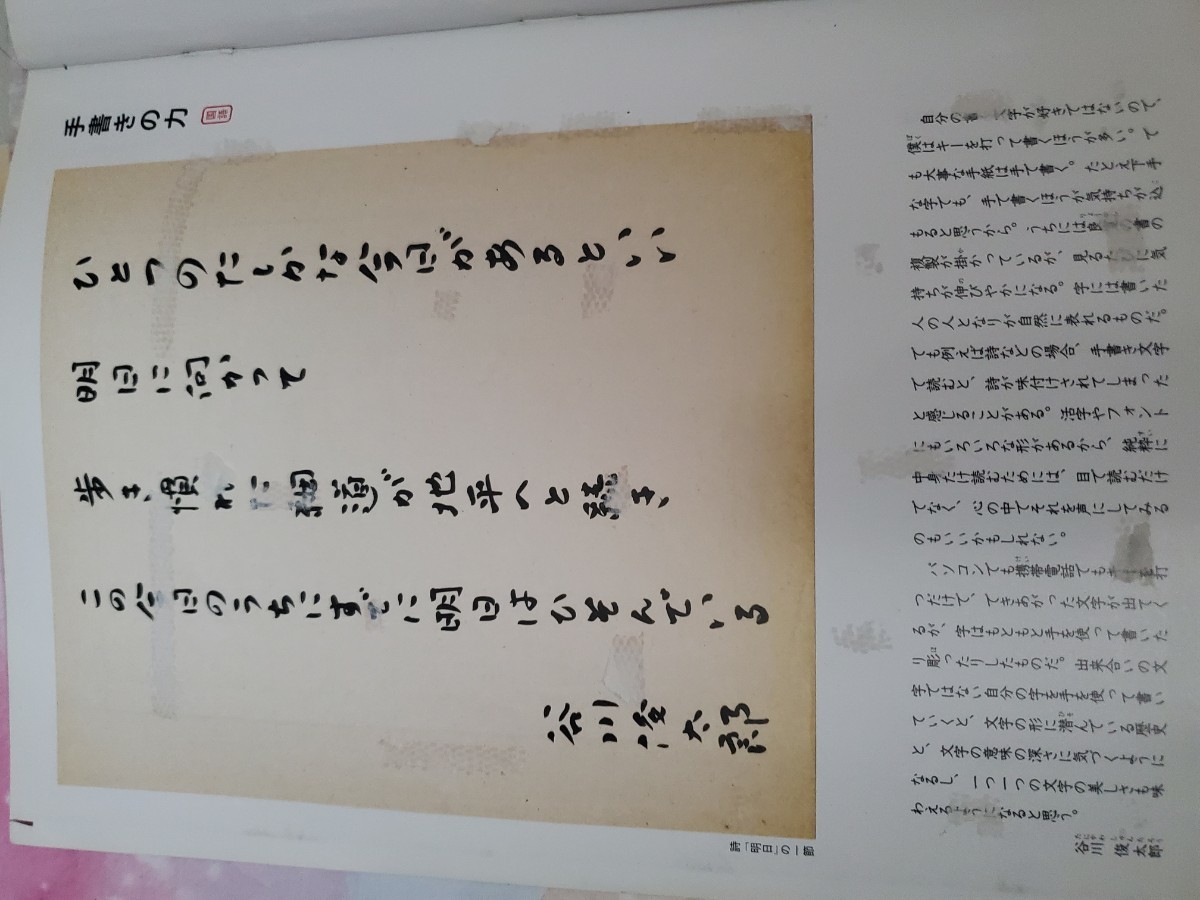 手書きの力
國語
ひとつのたしかな今日があるといい
明日に向かって
歩き慣れた細道が地平へと続き
この今日のうちにすでに明日はひそんでいる
谷川俊太郎
詩「明日」の一節
自分の書 字が好きではないので、
僕はキーを打って書くほうが多い。で
も大事な手紙は手で書く。たとえ下手
な字でも、手で書くほうが気持ちが込
もると思うから。うちには良 の書の
複製が掛かっているが、見るた に気
持ちが伸びやかになる。字には書いた
人の人となりが自然に表れるものだ。
でも例えば詩などの場合、手書き文字
で読むと、詩が味付けされてしまった
と感じることがある。活字やフォント
にもいろいろな形があるから、純粋に
中身だけ読むためには、目で読むだけ
でなく、心の中でそれを声にしてみる
のもいいかもしれない。
パソコンでも携帯電話でもキーを打
つだけで、できあがった文字が出てく
るが、字はもともと手を使って書いた
り彫ったりしたものだ。出来合いの文
字ではない自分の字を手を使って書い
ていくと、文字の形に潜んでいる歴史
と、文字の意味の深さに気づくように
なるし、一つ一つの文字の美しさも味
わえるようになると思う。
谷川 俊太郎